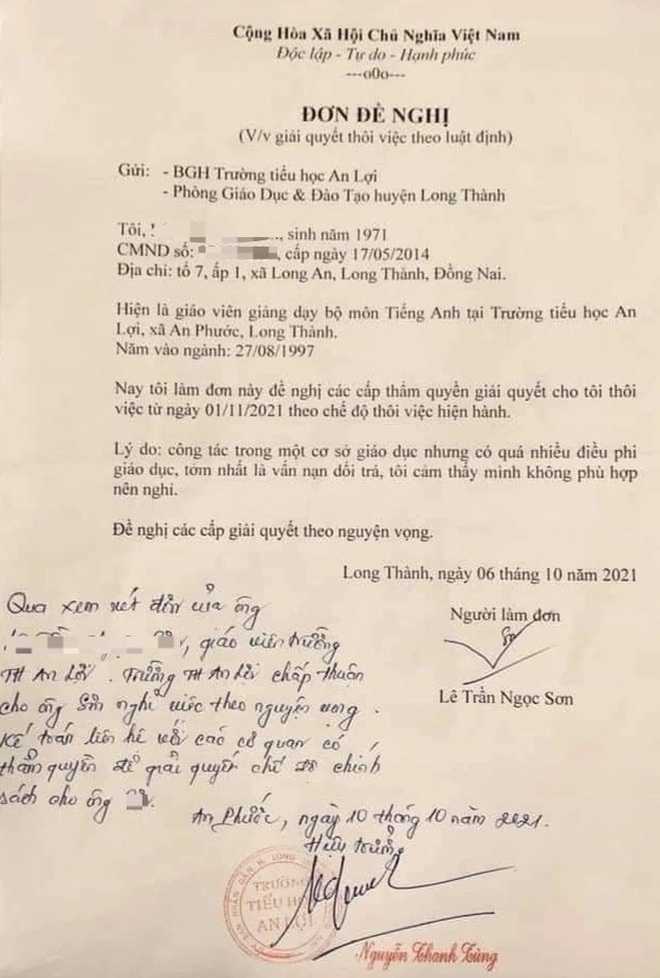 Cộng Hòa Xã Hội Chủ Nghĩa Việt Nam
Độc lập - Tự do - Hạnh phúc
---o0o---
ĐƠN ĐỀ NGHỊ
(V/v giải quyết thôi việc theo luật định)
Gửi: - BGH Trường tiểu học An Lợi
- Phòng Giáo Dục & Đào Tạo huyện Long Thành
Tôi, ..., sinh năm 1971
CMND số: , cấp ngày 17/05/2014
Địa chỉ: tổ 7, ấp 1, xã Long An, Long Thành, Đồng Nai.
Hiện là giáo viên giảng dạy bộ môn Tiếng Anh tại Trường tiểu học An
Lợi, xã An Phước, Long Thành.
Năm vào ngành: 27/08/1997
Nay tôi làm đơn này đề nghị các cấp thẩm quyền giải quyết cho tôi thôi
việc từ ngày 01/11/2021 theo chế độ thôi việc hiện hành.
Lý do: công tác trong một cơ sở giáo dục nhưng có quá nhiều điều phi
giáo dục, tởm nhất là vấn nạn dối trá, tôi cảm thấy mình không phù hợp
nên nghỉ.
Đề nghị các cấp giải quyết theo nguyện vọng.
Long Thành, ngày 06 tháng 10 năm 2021
Người làm đơn
Lê Trần Ngọc Sơn
Qua xem xét đơn của ông
, giáo viên trường
TH An Lợi. Trường TH An Lợi chấp thuận
cho ông Sơn nghỉ việc theo nguyện vọng.
Kế toán liên hệ với các cơ quan có
thẩm quyền để giải quyết chế độ chính
sách cho ông
An Phước, ngày 10 tháng 10 năm 2021.
Hiệu trưởng
TRƯỜNG
TIỂU HỌC
AN LỢI
Nguyễn Thanh Tùng